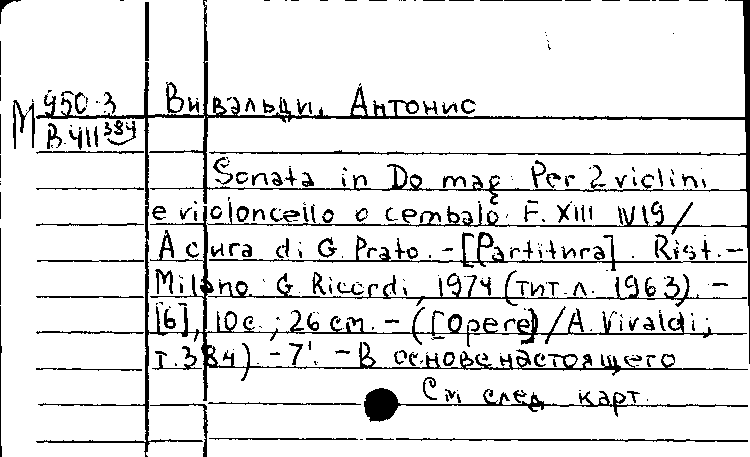 М 950-3 Вивальди, Антонио
В-411 384
Sonata in Do mag. Per 2 violini
e violoncello o cembalo. F. XIII N 19 /
A cura di G. Prato. - [Partitura]. Rist. -
Milano: G. Ricordi, 1974 (тит. л. 1963). -
[6], 10 с.; 26 cm. - ([Opere] / A. Vivaldi;
т. 384). - 7'. - В основе настоящего
См след. карт.